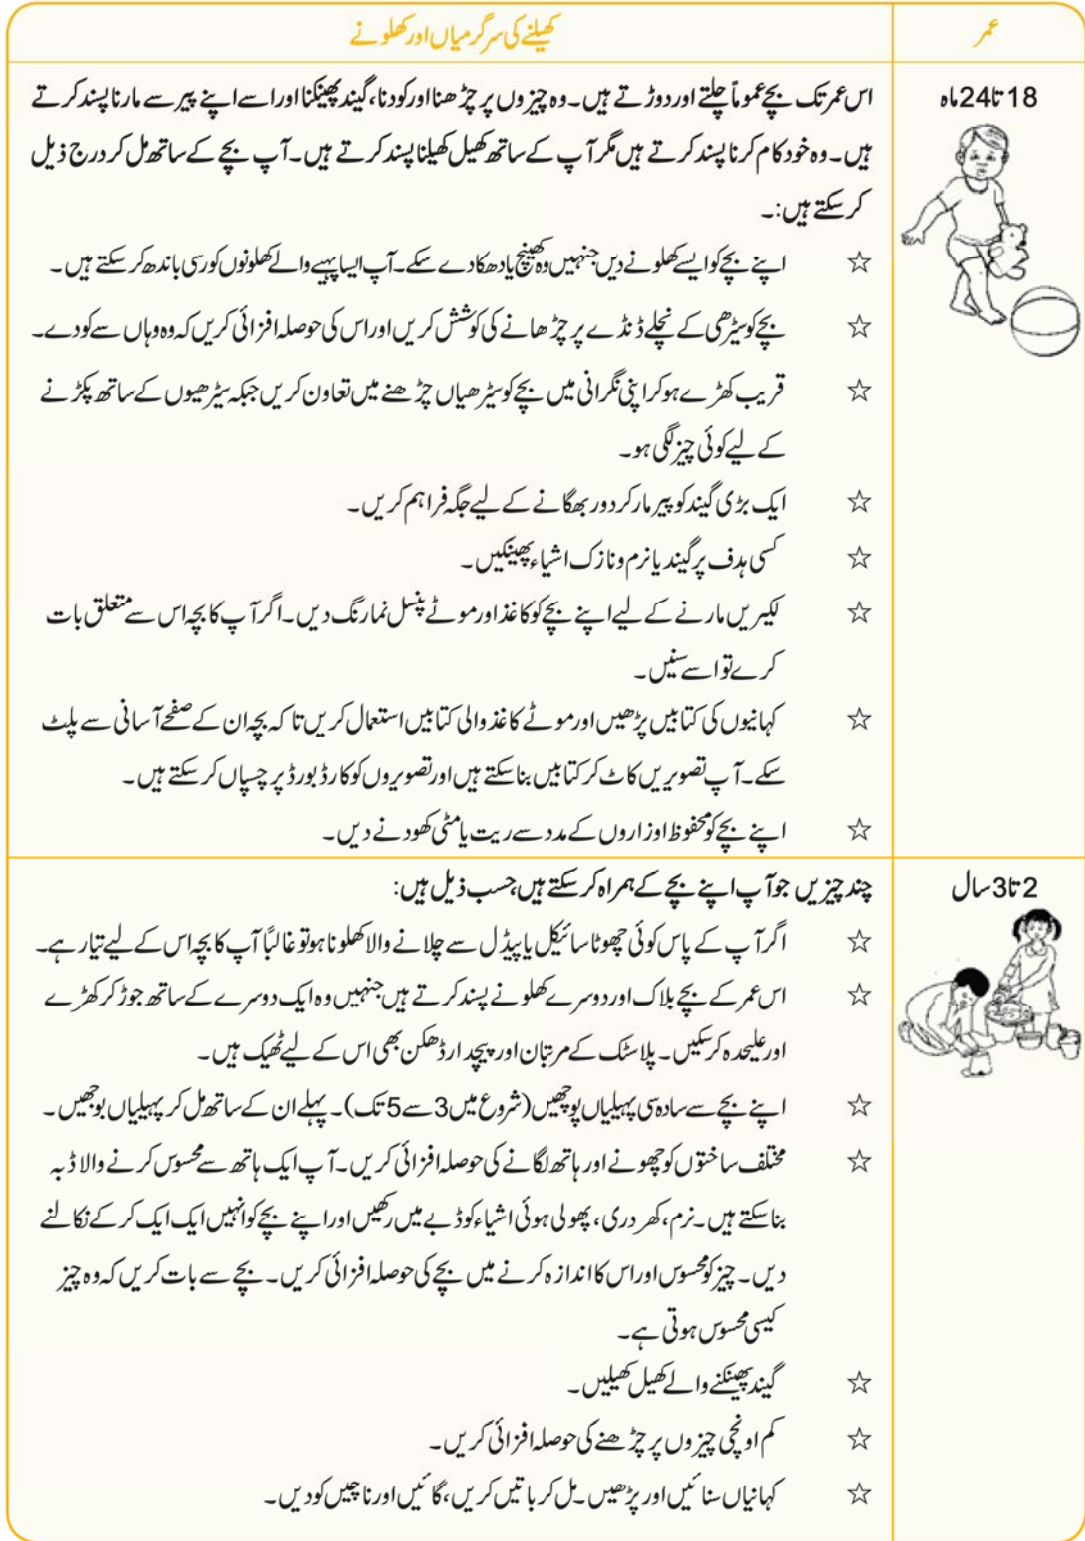 عمر
کھیلنے کی سرگرمیاں اور کھلونے
18 تا 24 ماہ
اس عمر تک بچے عموماً چلتے اور دوڑتے ہیں۔ وہ چیزوں پر چڑھنا اور کودنا، گیند پھینکنا اور اسے اپنے پیر سے مارنا پسند کرتے
ہیں۔ وہ خود کام کرنا پسند کرتے ہیں مگر آپ کے ساتھ کھیل کھیلنا پسند کرتے ہیں۔ آپ بچے کے ساتھ مل کر درج ذیل
کر سکتے ہیں:۔
☆ اپنے بچے کو ایسے کھلونے دیں جنہیں وہ کھینچ یا دھکا دے سکے۔ آپ ایسا پہیے والے کھلونوں کو رسی باندھ کر سکتے ہیں۔
☆ بچے کو سیڑھی کے نچلے ڈنڈے پر چڑھانے کی کوشش کریں اور اس کی حوصلہ افزائی کریں کہ وہ وہاں سے کودے۔
☆ قریب کھڑے ہو کر اپنی نگرانی میں بچے کو سیڑھیاں چڑھنے میں تعاون کریں جبکہ سیڑھیوں کے ساتھ پکڑنے
کے لیے کوئی چیز لگی ہو۔
☆ ایک بڑی گیند کو پیر مار کر دور بھگانے کے لیے جگہ فراہم کریں۔
☆ کسی ہدف پر گیند یا نرم و نازک اشیاء پھینکیں۔
☆ لکیریں مارنے کے لیے اپنے بچے کو کاغذ اور موٹے پنسل نما رنگ دیں۔ اگر آپ کا بچہ اس سے متعلق بات
کرے تو اسے سنیں۔
☆ کہانیوں کی کتابیں پڑھیں اور موٹے کاغذ والی کتابیں استعمال کریں تا کہ بچہ ان کے صفحے آسانی سے پلٹ
سکے۔ آپ تصویریں کاٹ کر کتابیں بنا سکتے ہیں اور تصویروں کو کارڈ بورڈ پر چسپاں کر سکتے ہیں۔
☆ اپنے بچے کو محفوظ اوزاروں کے مدد سے ریت یا مٹی کھودنے دیں۔
2 تا 3 سال
چند چیزیں جو آپ اپنے بچے کے ہمراہ کر سکتے ہیں، حسب ذیل ہیں:
☆ اگر آپ کے پاس کوئی چھوٹا سائیکل یا پیڈل سے چلانے والا کھلونا ہو تو غالباً آپ کا بچہ اس کے لیے تیار ہے۔
☆ اس عمر کے بچے بلاک اور دوسرے کھلونے پسند کرتے ہیں جنہیں وہ ایک دوسرے کے ساتھ جوڑ کر کھڑے
اور علیحدہ کر سکیں۔ پلاسٹک کے مرتبان اور پیچدار ڈھکن بھی اس کے لیے ٹھیک ہیں۔
☆ اپنے بچے سے سادہ سی پہیلیاں پوچھیں (شروع میں 3 سے 5 تک)۔ پہلے ان کے ساتھ مل کر پہیلیاں بوجھیں۔
☆ مختلف ساختوں کو چھونے اور ہاتھ لگانے کی حوصلہ افزائی کریں۔ آپ ایک ہاتھ سے محسوس کرنے والا ڈبہ
بنا سکتے ہیں۔ نرم، کھردری، پھولی ہوئی اشیاء کو ڈبے میں رکھیں اور اپنے بچے کو انہیں ایک ایک کر کے نکالنے
دیں۔ چیز کو محسوس اور اس کا اندازہ کرنے میں بچے کی حوصلہ افزائی کریں۔ بچے سے بات کریں کہ وہ چیز
کیسی محسوس ہوتی ہے۔
☆ گیند پھینکنے والے کھیل کھیلیں۔
☆ کم اونچی چیزوں پر چڑھنے کی حوصلہ افزائی کریں۔
☆ کہانیاں سنائیں اور پڑھیں۔ مل کر باتیں کریں، گائیں اور ناچیں کودیں۔